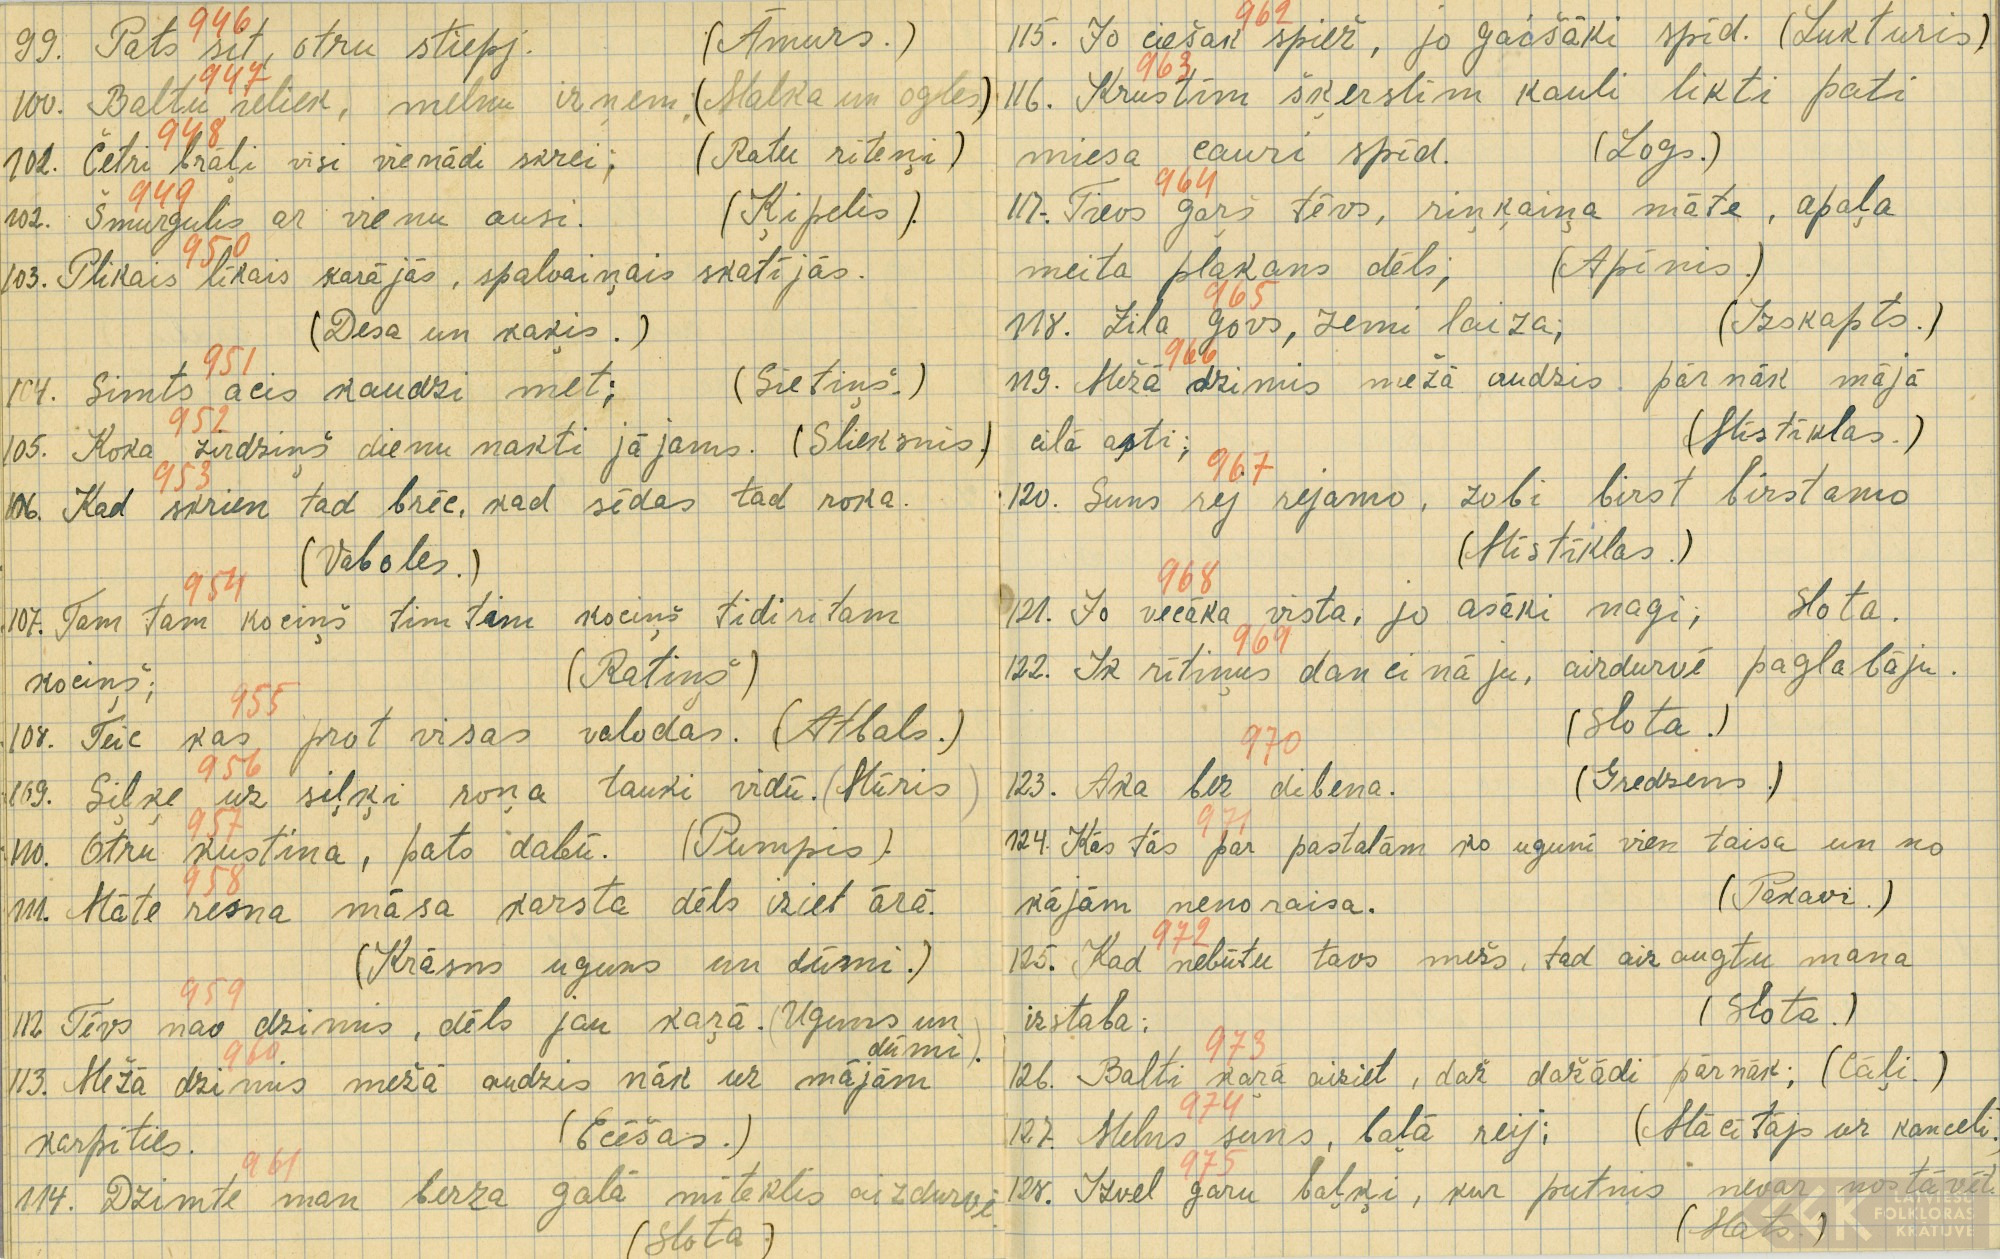 946
99. Pats sit, otru stiepj. (Āmurs.)
947
100. Baltu ieliek, melnu izņem; (Malka un ogles)
948
102. Četri brāļi visi vienādi skrej; (Ratu riteņi)
949
102. Šmurgulis ar vienu ausi. (Ķipelis).
950
103. Plikais līkais karājās, spalvaiņais skatījās.
(Desa un kaķis.)
951
104. Simts acis kaudzi met; (Sietiņš.)
952
105. Koka zirdziņš dienu nakti jājams. (Slieksnis.)
953
106. Kad skrien tad brēc, kad sēdas tad roka.
(Vaboles.)
954
107. Tam tam kociņš tim tim kociņš tidiritam
kociņš; (Ratiņš)
955
108. Teic kas prot visas valodas. (Atbals.)
956
109. Siļķe uz siļķi roņa tauki vidū. (Mūris)
957
110. Otru kustina, pats dabū. (Pumpis).
958
111. Māte resna māsa karsta dēls iziet ārā.
(Krāsns uguns un dūmi.)
959
112 Tēvs nav dzimis, dēls jau kaŗā. (Uguns un
dūmi).
960
113. Mežā dzimis mežā audzis nāk uz mājām
karpīties. (Ecēšas.)
961
114. Dzimte man berza galā miteklis aizdurvē.
(Slota.)
962
115. Jo ciešak spiež, jo gaišāki spīd. (Lukturis)
963
116. Krustīm šķerslīm kauli likti pati
miesa cauri spīd. (Logs.)
964
117. Tievs gaŗš tēvs, riņķaiņa māte, apaļa
meita plakans dēls; (Apīnis.)
965
118. Zila govs, zemi laiza; (Izskapts.)
966
119. Mežā dzimis mežā audzis pārnāk mājā
cilā asti; (Mīstīklas.)
967
120. Suns rej rejamo, zobi birst birstamo
(Mīstīklas.)
968
121. Jo vecāka vista, jo asāki nagi; Slota.
969
122. Ik rītiņus dancināju, aizdurvē paglabāju.
(Slota.)
970
123. Aka bez dibena. (Gredzens.)
971
124. Kās tās par pastalām ko uguni vien taisa un no
kājām nenoraisa. (Pakavi.)
972
125. Kad nebūtu tavs mežs, tad aizaugtu mana
izstaba; (Slota.)
973
126. Balti kaŗā aiziet, daž dažādi pārnāk; (Cāļi.)
974
127. Melns suns, baļā reij; (Mācītājs uz kanceli.)
975
128. Izvel gaŗu baļķi, kur putnis nevar nostāvēt.
(Mats.)
LATVIEŠU
FOLKLORAS
KRĀTUVE